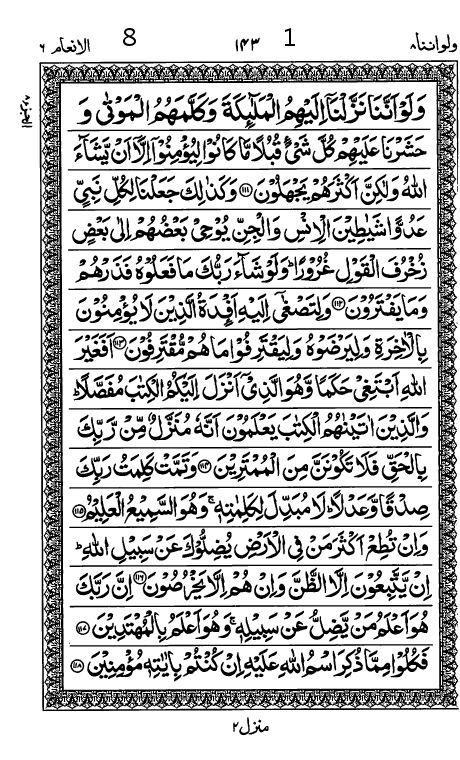 ولواننا۸ 1 ۱۴۳ 8 الانعام ۶
وَلَوْ اَنَّنَا نَزَّلْنَاۤ اِلَيْهِمُ الْمَلٰٓئِكَةَ وَكَلَّمَهُمُ الْمَوْتٰى وَ
حَشَرْنَا عَلَيْهِمْ كُلَّ شَيْءٍ قُبُلًا مَّا كَانُوْا لِيُؤْمِنُوْۤا اِلَّاۤ اَنْ يَّشَآءَ
اللّٰهُ وَلٰكِنَّ اَكْثَرَهُمْ يَجْهَلُوْنَ ۝۱۱۱ وَكَذٰلِكَ جَعَلْنَا لِكُلِّ نَبِيٍّ
عَدُوًّا شَيٰطِيْنَ الْاِنْسِ وَالْجِنِّ يُوْحِيْ بَعْضُهُمْ اِلٰى بَعْضٍ
زُخْرُفَ الْقَوْلِ غُرُوْرًا ؕ وَلَوْ شَآءَ رَبُّكَ مَا فَعَلُوْهُ فَذَرْهُمْ
وَمَا يَفْتَرُوْنَ ۝۱۱۲ وَلِتَصْغٰۤى اِلَيْهِ اَفْـِٕدَةُ الَّذِيْنَ لَا يُؤْمِنُوْنَ
بِالْاٰخِرَةِ وَلِيَرْضَوْهُ وَلِيَقْتَرِفُوْا مَا هُمْ مُّقْتَرِفُوْنَ ۝۱۱۳ اَفَغَيْرَ
اللّٰهِ اَبْتَغِيْ حَكَمًا وَّهُوَ الَّذِيْۤ اَنْزَلَ اِلَيْكُمُ الْكِتٰبَ مُفَصَّلًا ؕ
وَالَّذِيْنَ اٰتَيْنٰهُمُ الْكِتٰبَ يَعْلَمُوْنَ اَنَّهٗ مُنَزَّلٌ مِّنْ رَّبِّكَ
بِالْحَقِّ فَلَا تَكُوْنَنَّ مِنَ الْمُمْتَرِيْنَ ۝۱۱۴ وَتَمَّتْ كَلِمَتُ رَبِّكَ
صِدْقًا وَّعَدْلًا ؕ لَا مُبَدِّلَ لِكَلِمٰتِهٖ ۚ وَهُوَ السَّمِيْعُ الْعَلِيْمُ ۝۱۱۵
وَاِنْ تُطِعْ اَكْثَرَ مَنْ فِي الْاَرْضِ يُضِلُّوْكَ عَنْ سَبِيْلِ اللّٰهِ ؕ
اِنْ يَّتَّبِعُوْنَ اِلَّا الظَّنَّ وَاِنْ هُمْ اِلَّا يَخْرُصُوْنَ ۝۱۱۶ اِنَّ رَبَّكَ
هُوَ اَعْلَمُ مَنْ يَّضِلُّ عَنْ سَبِيْلِهٖ ۚ وَهُوَ اَعْلَمُ بِالْمُهْتَدِيْنَ ۝۱۱۷
فَكُلُوْا مِمَّا ذُكِرَ اسْمُ اللّٰهِ عَلَيْهِ اِنْ كُنْتُمْ بِاٰيٰتِهٖ مُؤْمِنِيْنَ ۝۱۱۸
منزل ۲